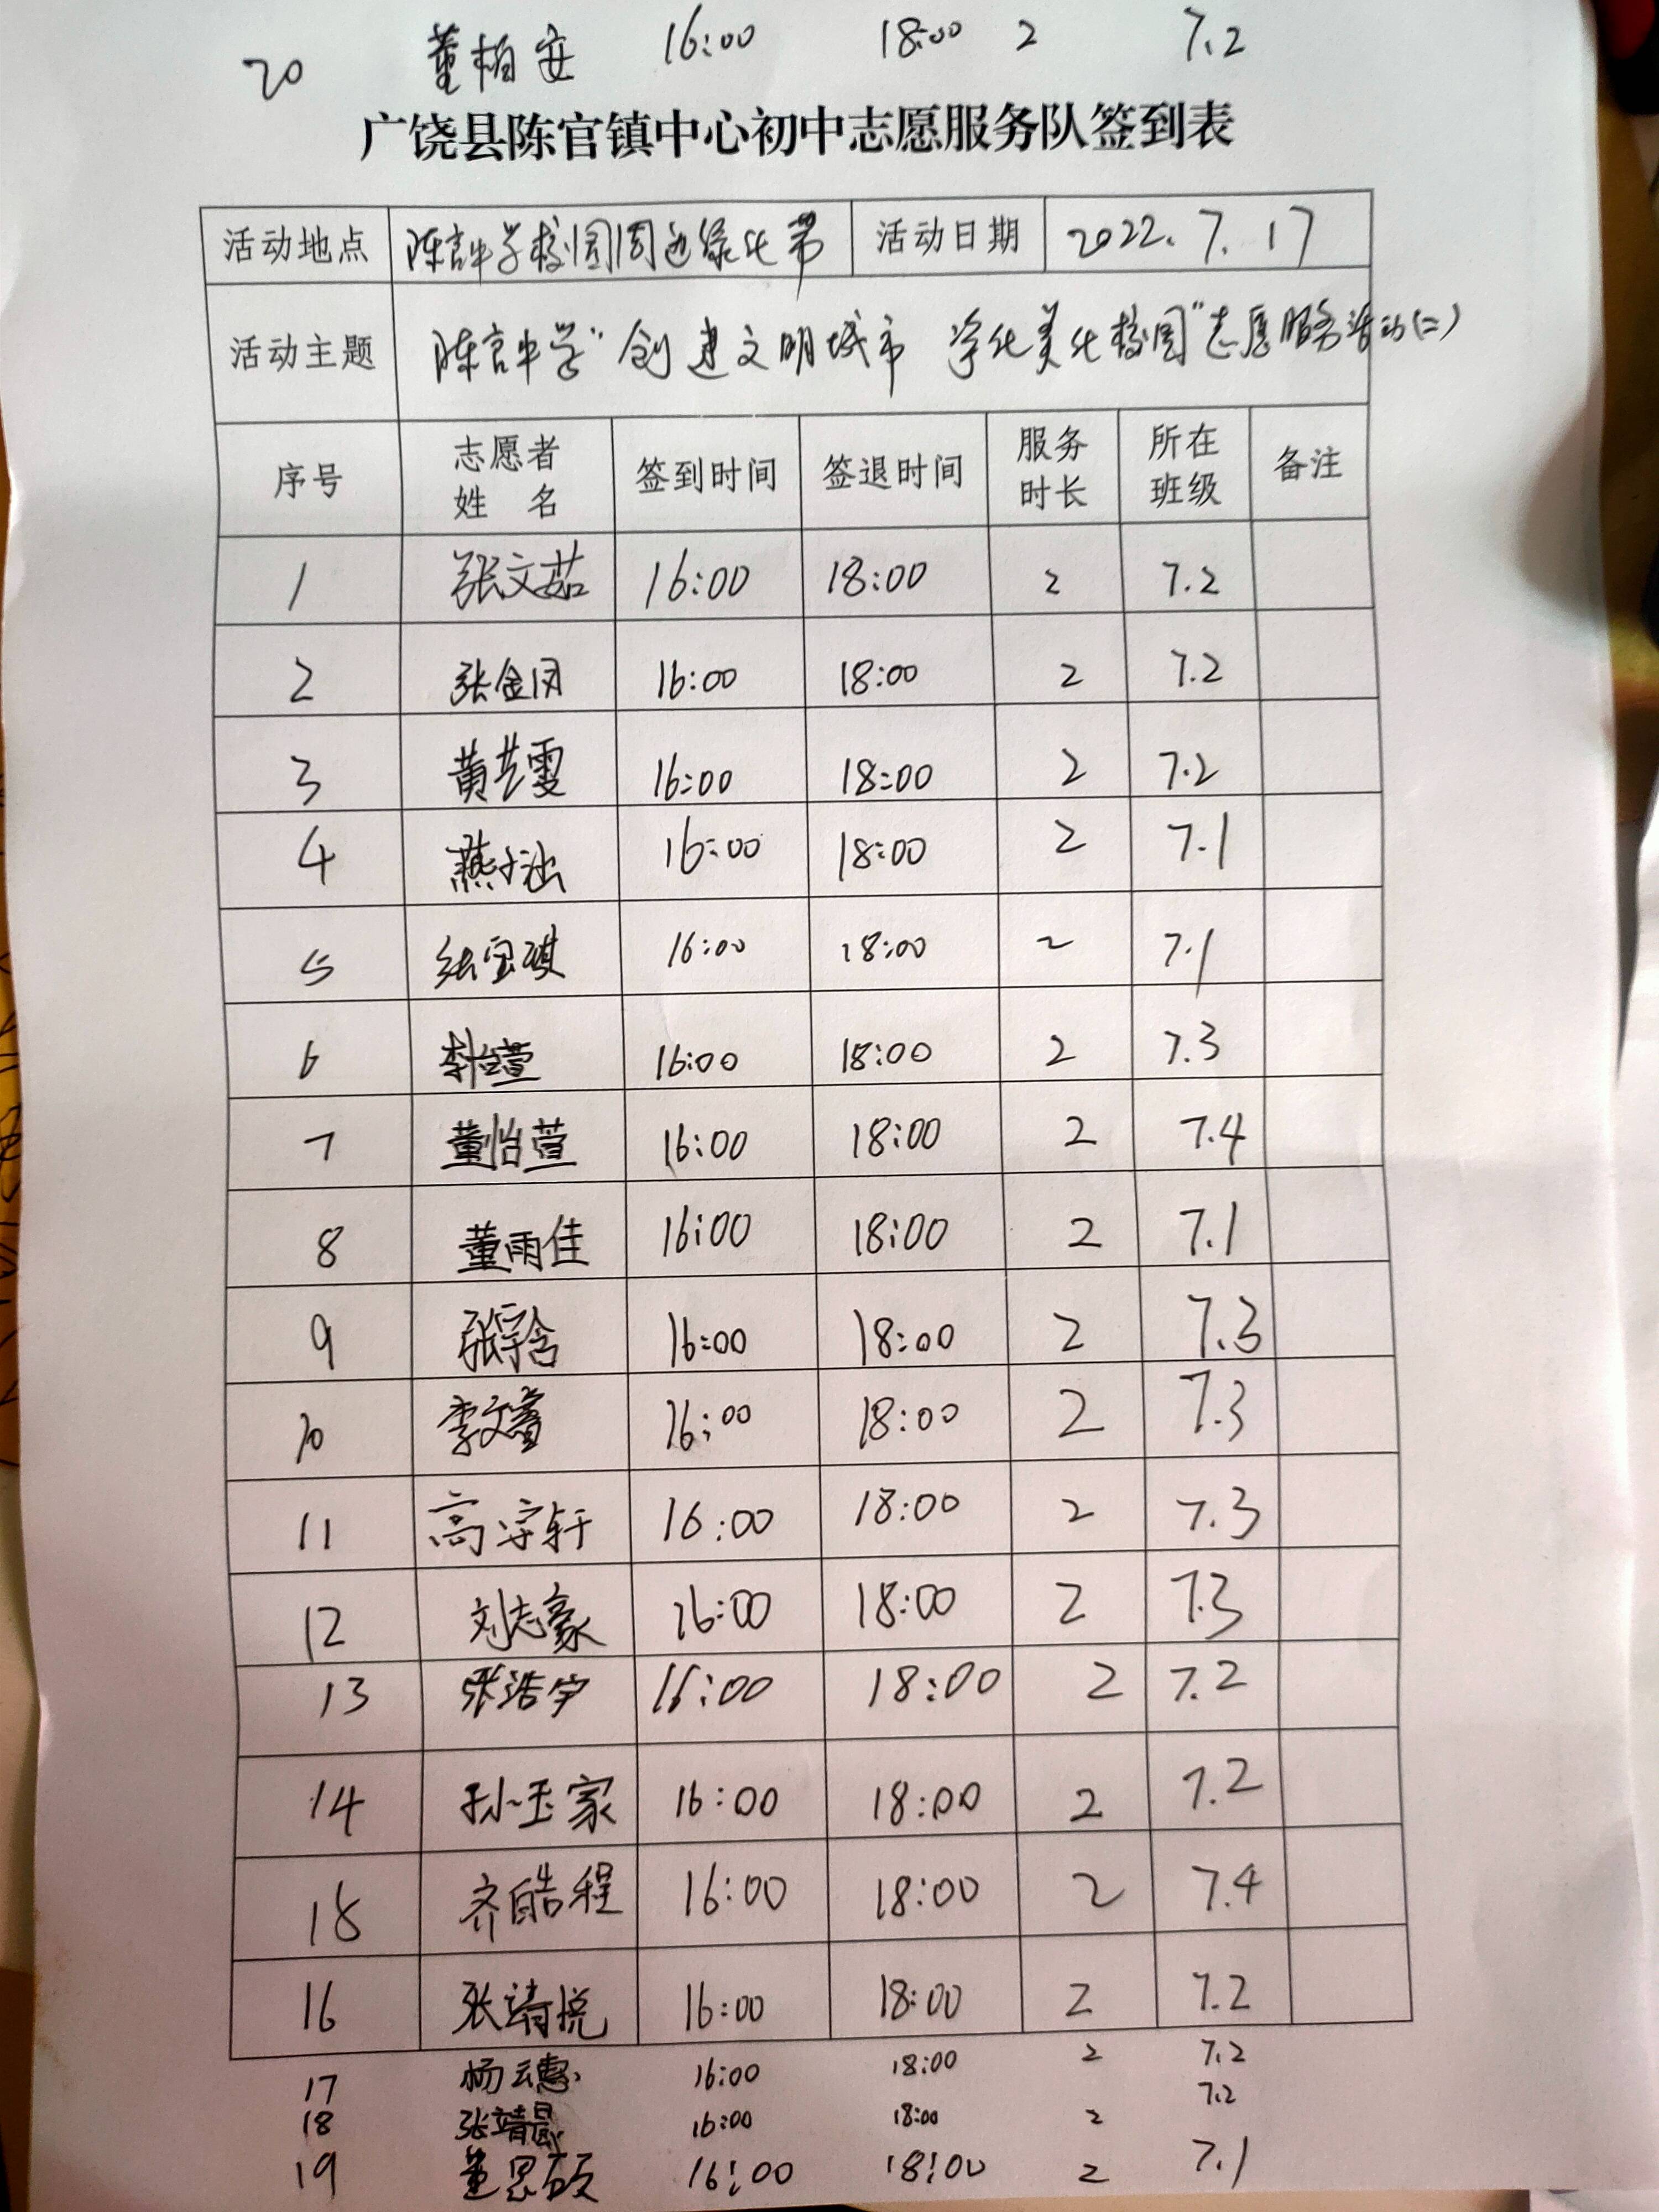 20 董柏安 16:00 18:00 2 7.2
广饶县陈官镇中心初中志愿服务队签到表
活动地点 陈官中学校园周边绿化带 活动日期 2022.7.17
活动主题 陈官中学“创建文明城市 净化美化校园”志愿服务活动(二)
序号 志愿者姓名 签到时间 签退时间 服务时长 所在班级 备注
1 张文茹 16:00 18:00 2 7.2
2 张金凤 16:00 18:00 2 7.2
3 黄艺雯 16:00 18:00 2 7.2
4 燕子涵 16:00 18:00 2 7.1
5 张宝琪 16:00 18:00 2 7.1
6 李怡萱 16:00 18:00 2 7.3
7 董怡萱 16:00 18:00 2 7.4
8 董雨佳 16:00 18:00 2 7.1
9 张宇含 16:00 18:00 2 7.3
10 李文睿 16:00 18:00 2 7.3
11 高宇轩 16:00 18:00 2 7.3
12 刘志豪 16:00 18:00 2 7.3
13 张浩宇 16:00 18:00 2 7.2
14 孙玉家 16:00 18:00 2 7.2
15 齐皓程 16:00 18:00 2 7.4
16 张靖悦 16:00 18:00 2 7.2
17 杨云惠 16:00 18:00 2 7.2
18 张靖晨 16:00 18:00 2 7.2
19 董思硕 16:00 18:00 2 7.1